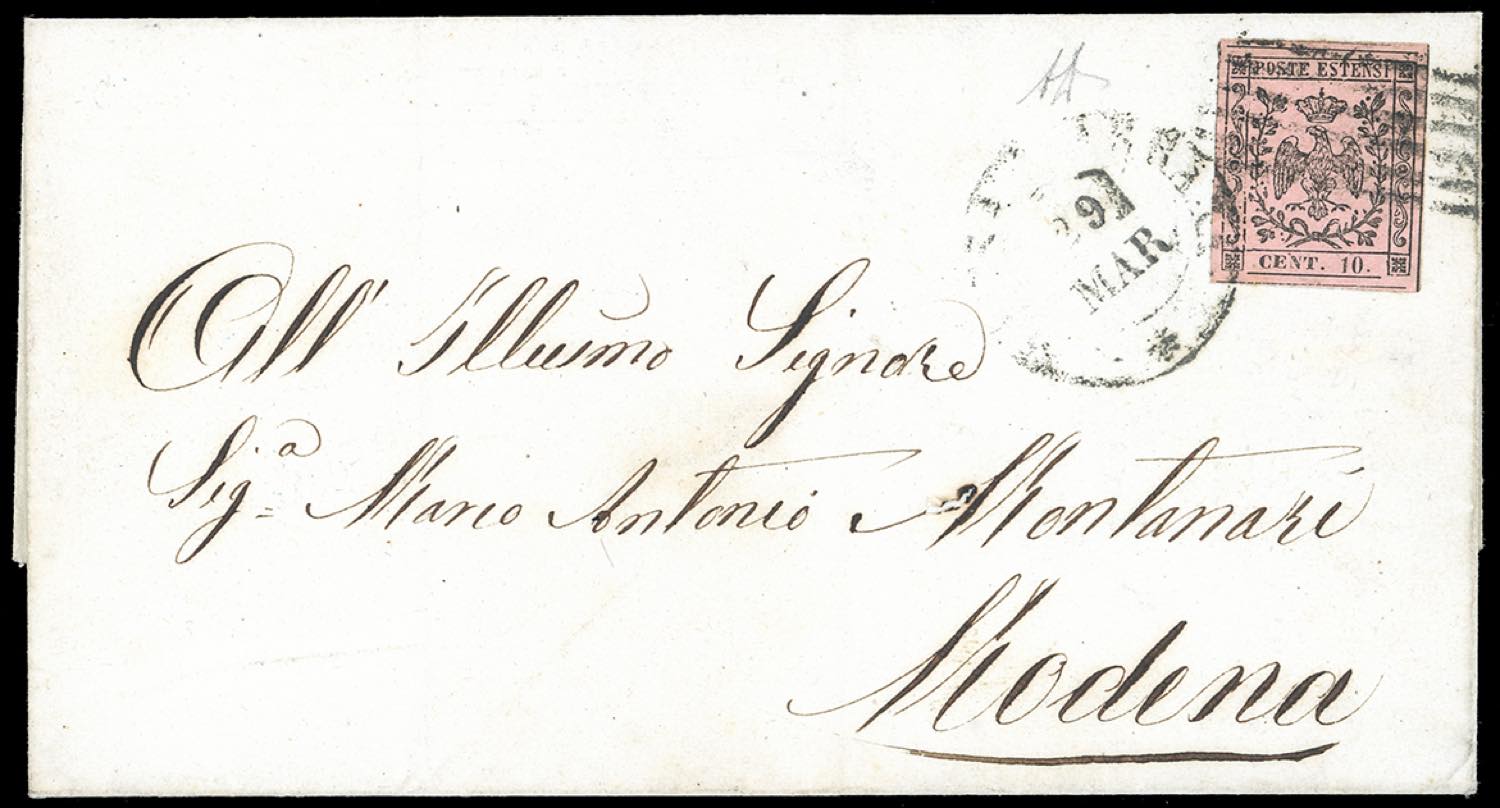 POSTE ESTENSI
CENT. 10.
29
MAR
All' Illusmo Signore
Sig.a Marco Antonio Montanari
Modena